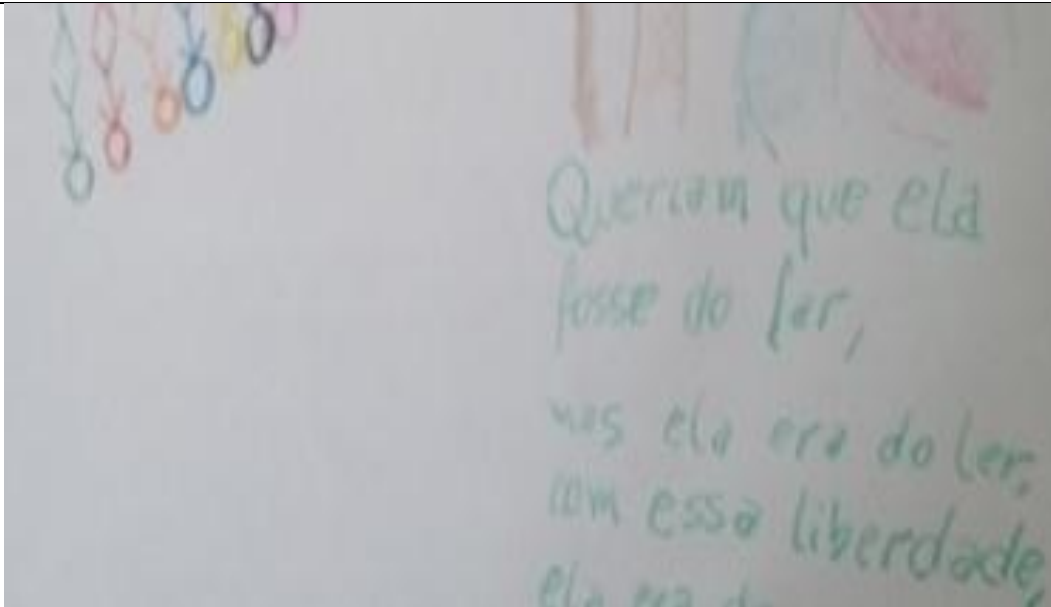 Queriam que ela
fosse do lar,
mas ela era do ler,
com essa liberdade,
ela era do